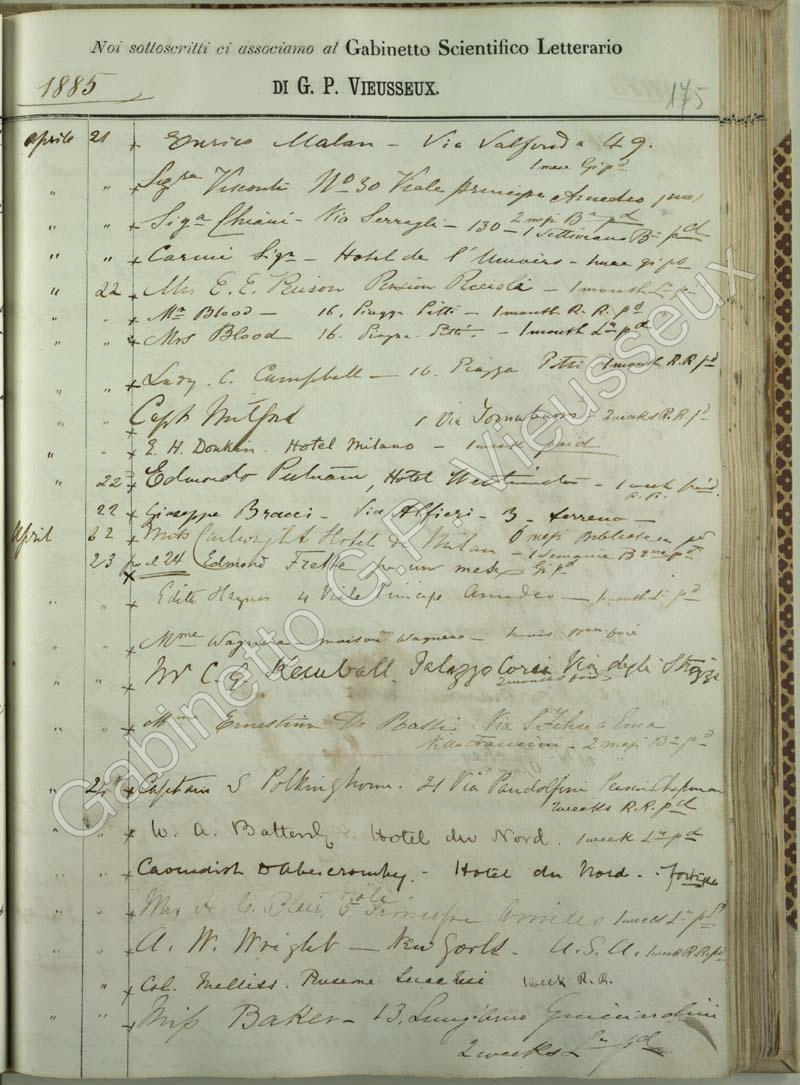 Noi sottoscritti ci associamo al Gabinetto Scientifico Letterario
DI G. P. VIEUSSEUX.
1885
175
Aprile 21 Enrico Malan - Via Valfonda 49.
1 mese Gi pd
" " Sigra Visconti No 30 Viale principe Amedeo
" " Siga Chiari - Via Serragli - 130 - 2 mesi Ba pd
1 Settimana Ba pd
" " Carmi Sigr - Hotel de l'Univers - 1 mese gi pd
" 22 Mrs E. E. Pension - 1 month Ln pd
" " Mr Blood - 16, Piazza Pitti - 1 month R. R. pd
" " Mrs Blood 16. Piazza Pitti - 1 month Ln pd
" " Lady C. Campbell - 16. Piazza Pitti 1 month R. R pd
" " Capt Mitford 1 Via Tornabuoni - 2 weeks R. R. pd
" " E. H. Donkin. Hotel Milano - 1 week paid
" 22 Edmondo Putnam, Hotel Westminster - 1 week paid.
R. R.
22 Giuseppe Bracci - Via Alfieri - 3 - terreno -
2 mesi Biblioteca pd
April 22 Miss Cartwright Hotel de Milan - 1 Ba pd
23 pel 24 Edmond per un mese Gi pd
" " Edith Haynes 4 Viale Principe Amedeo - 1 month Ln pd
" " Mme Wagnera maison Wagnera -
" " Mr C. G. Kemball. Palazzo Corsi Via degli Strozzi
2 months
" " Mme Ernestina De Bassi Via S. Felice a Ema
Villa - 2 mesi Ba pd
" 24 Captain S Polkinghorne. 21 Via Pandolfini Pension Chapman
2 weeks R. R. pd
" " W. A. Battersby Hotel du Nord. 1 week Ln pd
" " Cavendish D Abercromby. - Hotel du Nord. -
" " Mrs H. C. Viale Principe Amedeo 1 weeks Ln pd
" " A. W. Wright - New York - U. S. A. 1 week R R pd
" " Col. Melliss. Lucchesi 1 week R. R.
" " Miss Baker - 13, Lung'Arno Guicciardini
2 weeks Ln pd
Gabinetto G.P. Vieusseux